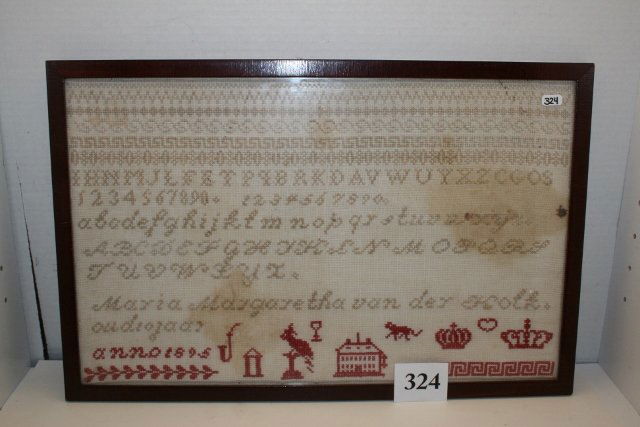 324
IHNMJLFETPBRKDAVWUYXZCGOS
1234567890. 1234567890.
abcdefghijklmnopqrstuvw
ABCDEFGHIJKLNMOPQRS
TUVWXYZ.
Maria Margaretha van der Kolk.
oud 10 jaar
anno 1895
324